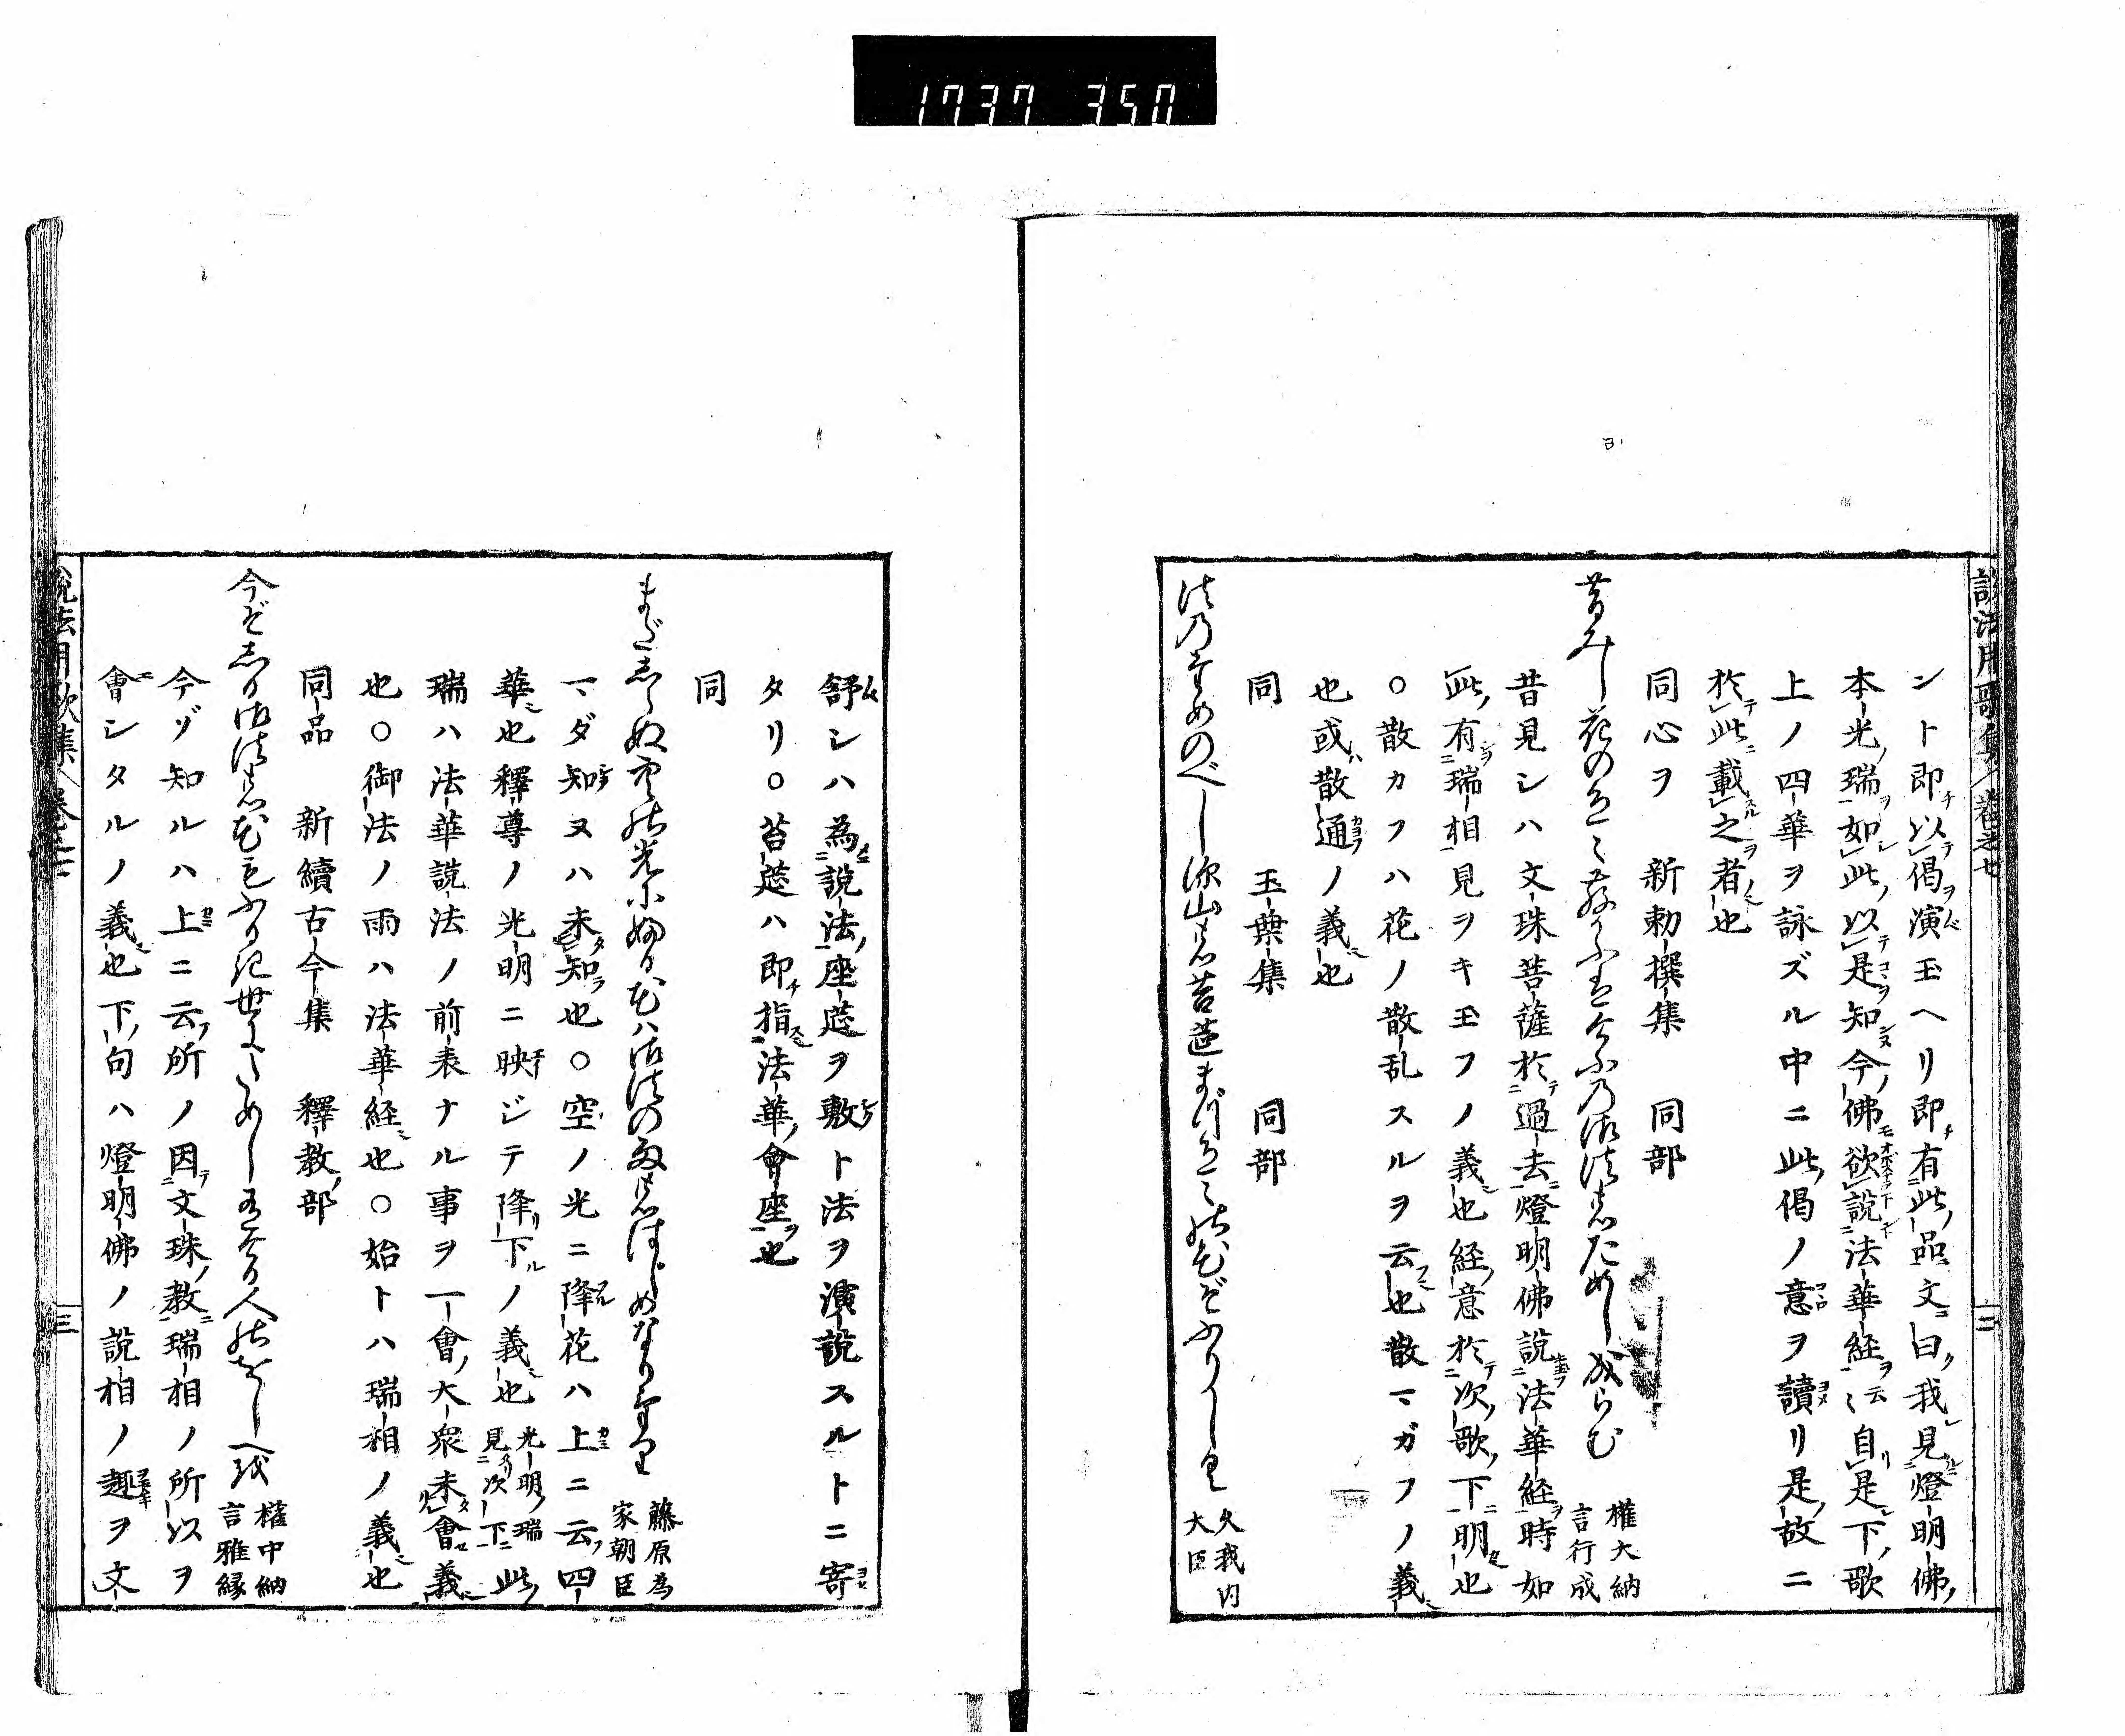 1737 350
説法用歌集 巻之廿
ント即チ以偈ヲ演玉ヘリ即チ有此品文ニ曰ク我見燈明佛ノ
本光瑞ヲ如此以是ヲ知ヌ今ノ佛モ欲説法華経ヲ云々自リ是下ノ歌
上ノ四華ヲ詠ズル中ニ此ノ偈ノ意ヲ讀リ是ノ故ニ
於テ此ニ載之ヲ者也
同心ヲ 新勅撰集 同部
昔みし花の色々散かふはけふの御法のためし成らむ 權大納言行成
昔見シハ文珠菩薩於テ過去ニ燈明佛説法華経ヲ時如
此ノ有瑞相見ヲキ玉フノ義也経ノ意於テ次ノ歌ノ下ニ明也
○散カフハ花ノ散乱スルヲ云也散マガフノ義
也或ハ散通ノ義也
同 玉葉集 同部
法乃ためのべし深山の苔莚まづ色々の花ぞふりしく 久我内大臣
舒シハ為説法ノ座莚ヲ敷ト法ヲ演説スルトニ寄
タリ○苔莚ハ即チ指法華ノ會座ヲ也
同
まだしらぬ空の光にふる花は御法の雨のはじめなりけり 藤原為家朝臣
マダ知ヌハ未タ知ラ也○空ノ光ニ降花ハ上ニ云ノ四
華也釋尊ノ光明ニ映ジテ降リ下ルノ義也光明ノ瑞見次下ニ此ノ
瑞ハ法華説法ノ前表ナル事ヲ一會ノ大衆未タ會セ義
也○御法ノ雨ハ法華経也○始トハ瑞相ノ義也
同品 新續古今集 釋教ノ部
今ぞしる御法の花もふりき世にためし有ける人のをしへに 權中納言雅縁
今ゾ知ルハ上ニ云ノ所ノ因テ文珠ノ教ニ瑞相ノ所以ヲ
會シタルノ義也下ノ句ハ燈明佛ノ説相ノ趣ヲ文
説法用歌集 巻之廿 三